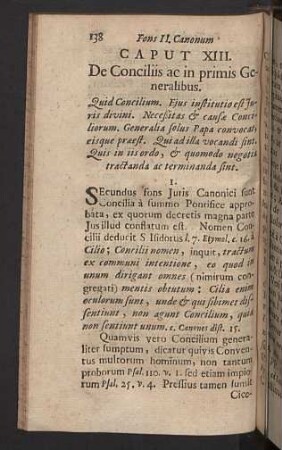 138 Fons II. Canonum
CAPUT XIII.
De Conciliis ac in primis Ge-
neralibus.
Quid Concilium. Ejus institutio est Ju-
ris divini. Necessitas & causæ Conci-
liorum. Generalia solus Papa convocat,
eisque præest. Qui ad illa vocandi sint.
Quis in iis ordo, & quomodo negotia
tractanda ac terminanda sint.
I.
Secundus fons Juris Canonici sunt
Concilia à summo Pontifice appro-
bata, ex quorum decretis magna parte
Jus illud conflatum est. Nomen Con-
cilii deducit S. Isidorus l. 7. Etymol. c. 16. à
Cilio; Concilii nomen, inquit, tractum
ex communi intentione, eo quod in
unum dirigant omnes (nimirum con-
gregati) mentis obtutum: Cilia enim
oculorum sunt, unde & qui sibimet dis-
sentiunt, non agunt Concilium, quia
non sentiunt unum. c. Canones dist. 15.
Quamvis vero Concilium genera-
liter sumptum, dicatur quivis Conven-
tus multorum hominum, non tantum
proborum Psal. 110. v. 1. sed etiam impio-
rum Psal. 25. v. 4. Pressius tamen sumit
Cice-